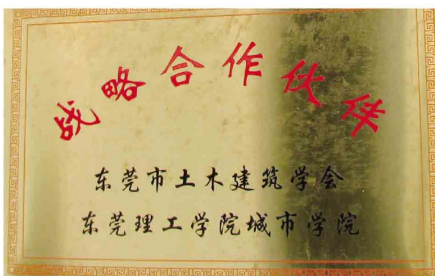 战略合作伙伴
东莞市土木建筑学会
东莞理工学院城市学院